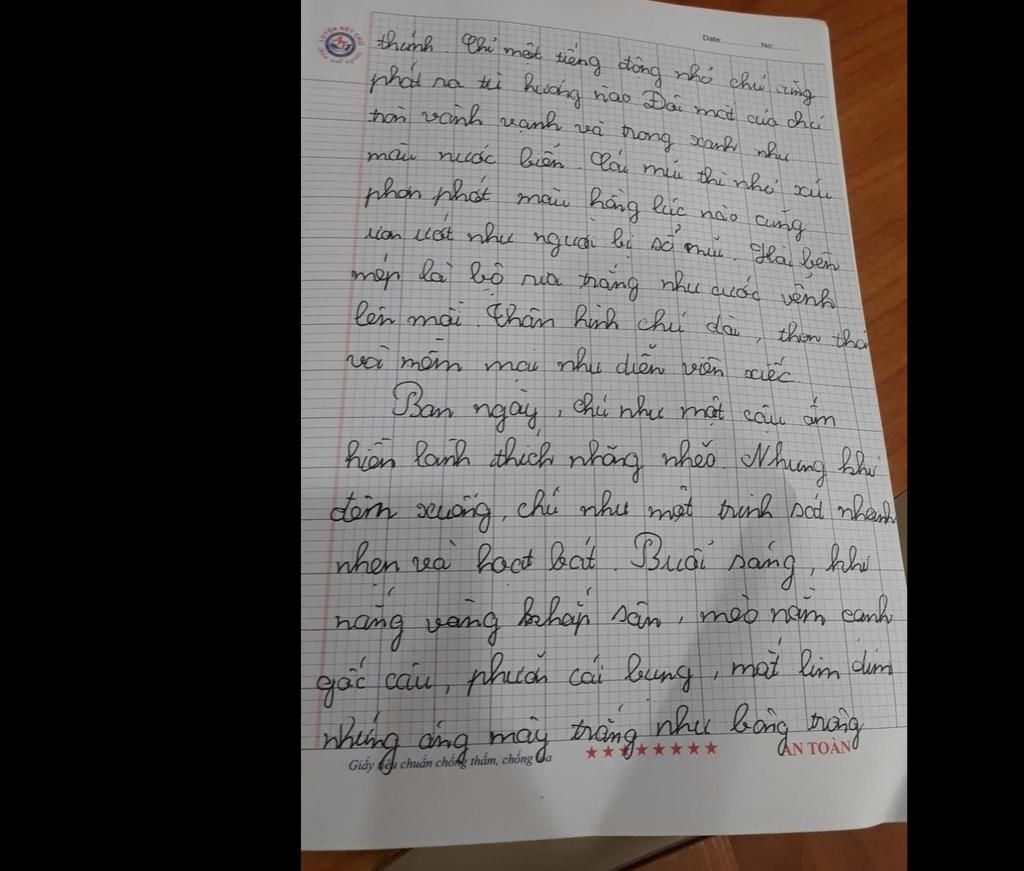 LUYỆN NÉT CHỮ
Date: No:
thính. Chỉ một tiếng động nhỏ chú cũng
phát ra từ hướng nào Đôi mắt của chú
tròn vành vạnh và trong xanh như
màu nước biển. Cái mũi thì nhỏ xíu
phơn phớt màu hồng lúc nào cũng
ươn ướt như người bị sổ mũi. Hai bên
mép là bộ ria trắng như cước vểnh
lên mãi. Thân hình chú dài, thon thả
và mềm mại như diễn viên xiếc.
Ban ngày, chú như một cậu ấm
hiền lành thích nhõng nhẽo. Nhưng khi
đêm xuống, chú như một trinh sát nhanh
nhẹn và hoạt bát. Buổi sáng, khi
nắng vàng khắp sân, mèo nằm cạnh
gốc cau, phưỡn cái bụng, mắt lim dim
những áng mây trắng như bông trong
Giấy tiêu chuẩn chống thấm, chống lóa AN TOÀN